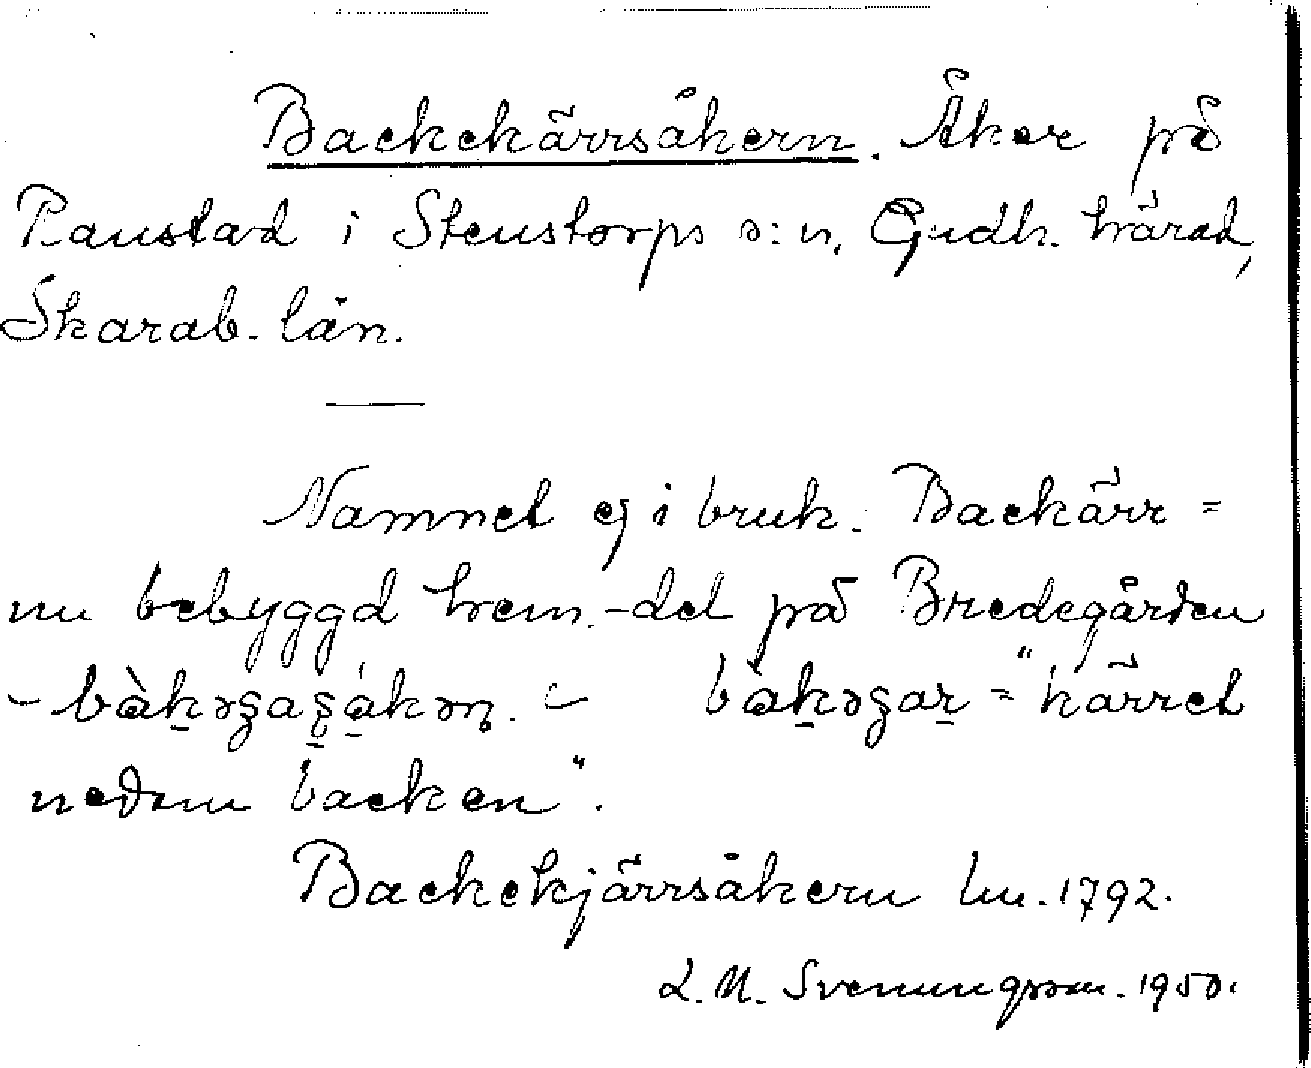 Backekärrsåkern. Åker på
Ranstad i Stenstorps s:n, Gudh. härad,
Skarab. län.
Namnet ej i bruk. Backärr =
nu bebyggd hem.-del på Bredegården
backen".
nedom backen".
Backekjärrsåkern Lm. 1792.
L. M. Svenungsson. 1950.